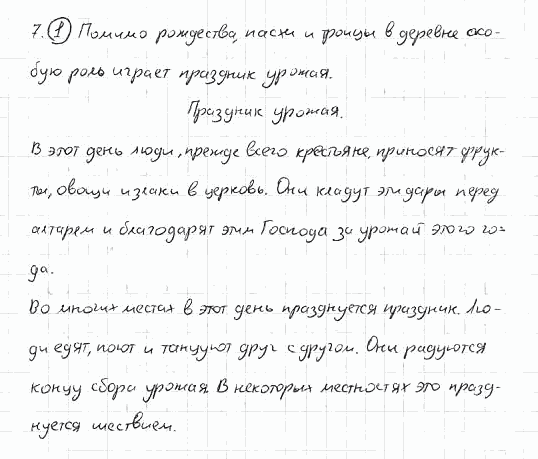 7. 1 Помимо рождества, пасхи и троицы в деревне осо-
бую роль играет праздник урожая.
Праздник урожая.
В этот день люди, прежде всего крестьяне, приносят фрук-
ты, овощи и злаки в церковь. Они кладут эти дары перед
алтарем и благодарят этим Господа за урожай этого го-
да.
Во многих местах в этот день празднуется праздник. Лю-
ди едят, поют и танцуют друг с другом. Они радуются
концу сбора урожая. В некоторых местностях это празд-
нуется шествием.